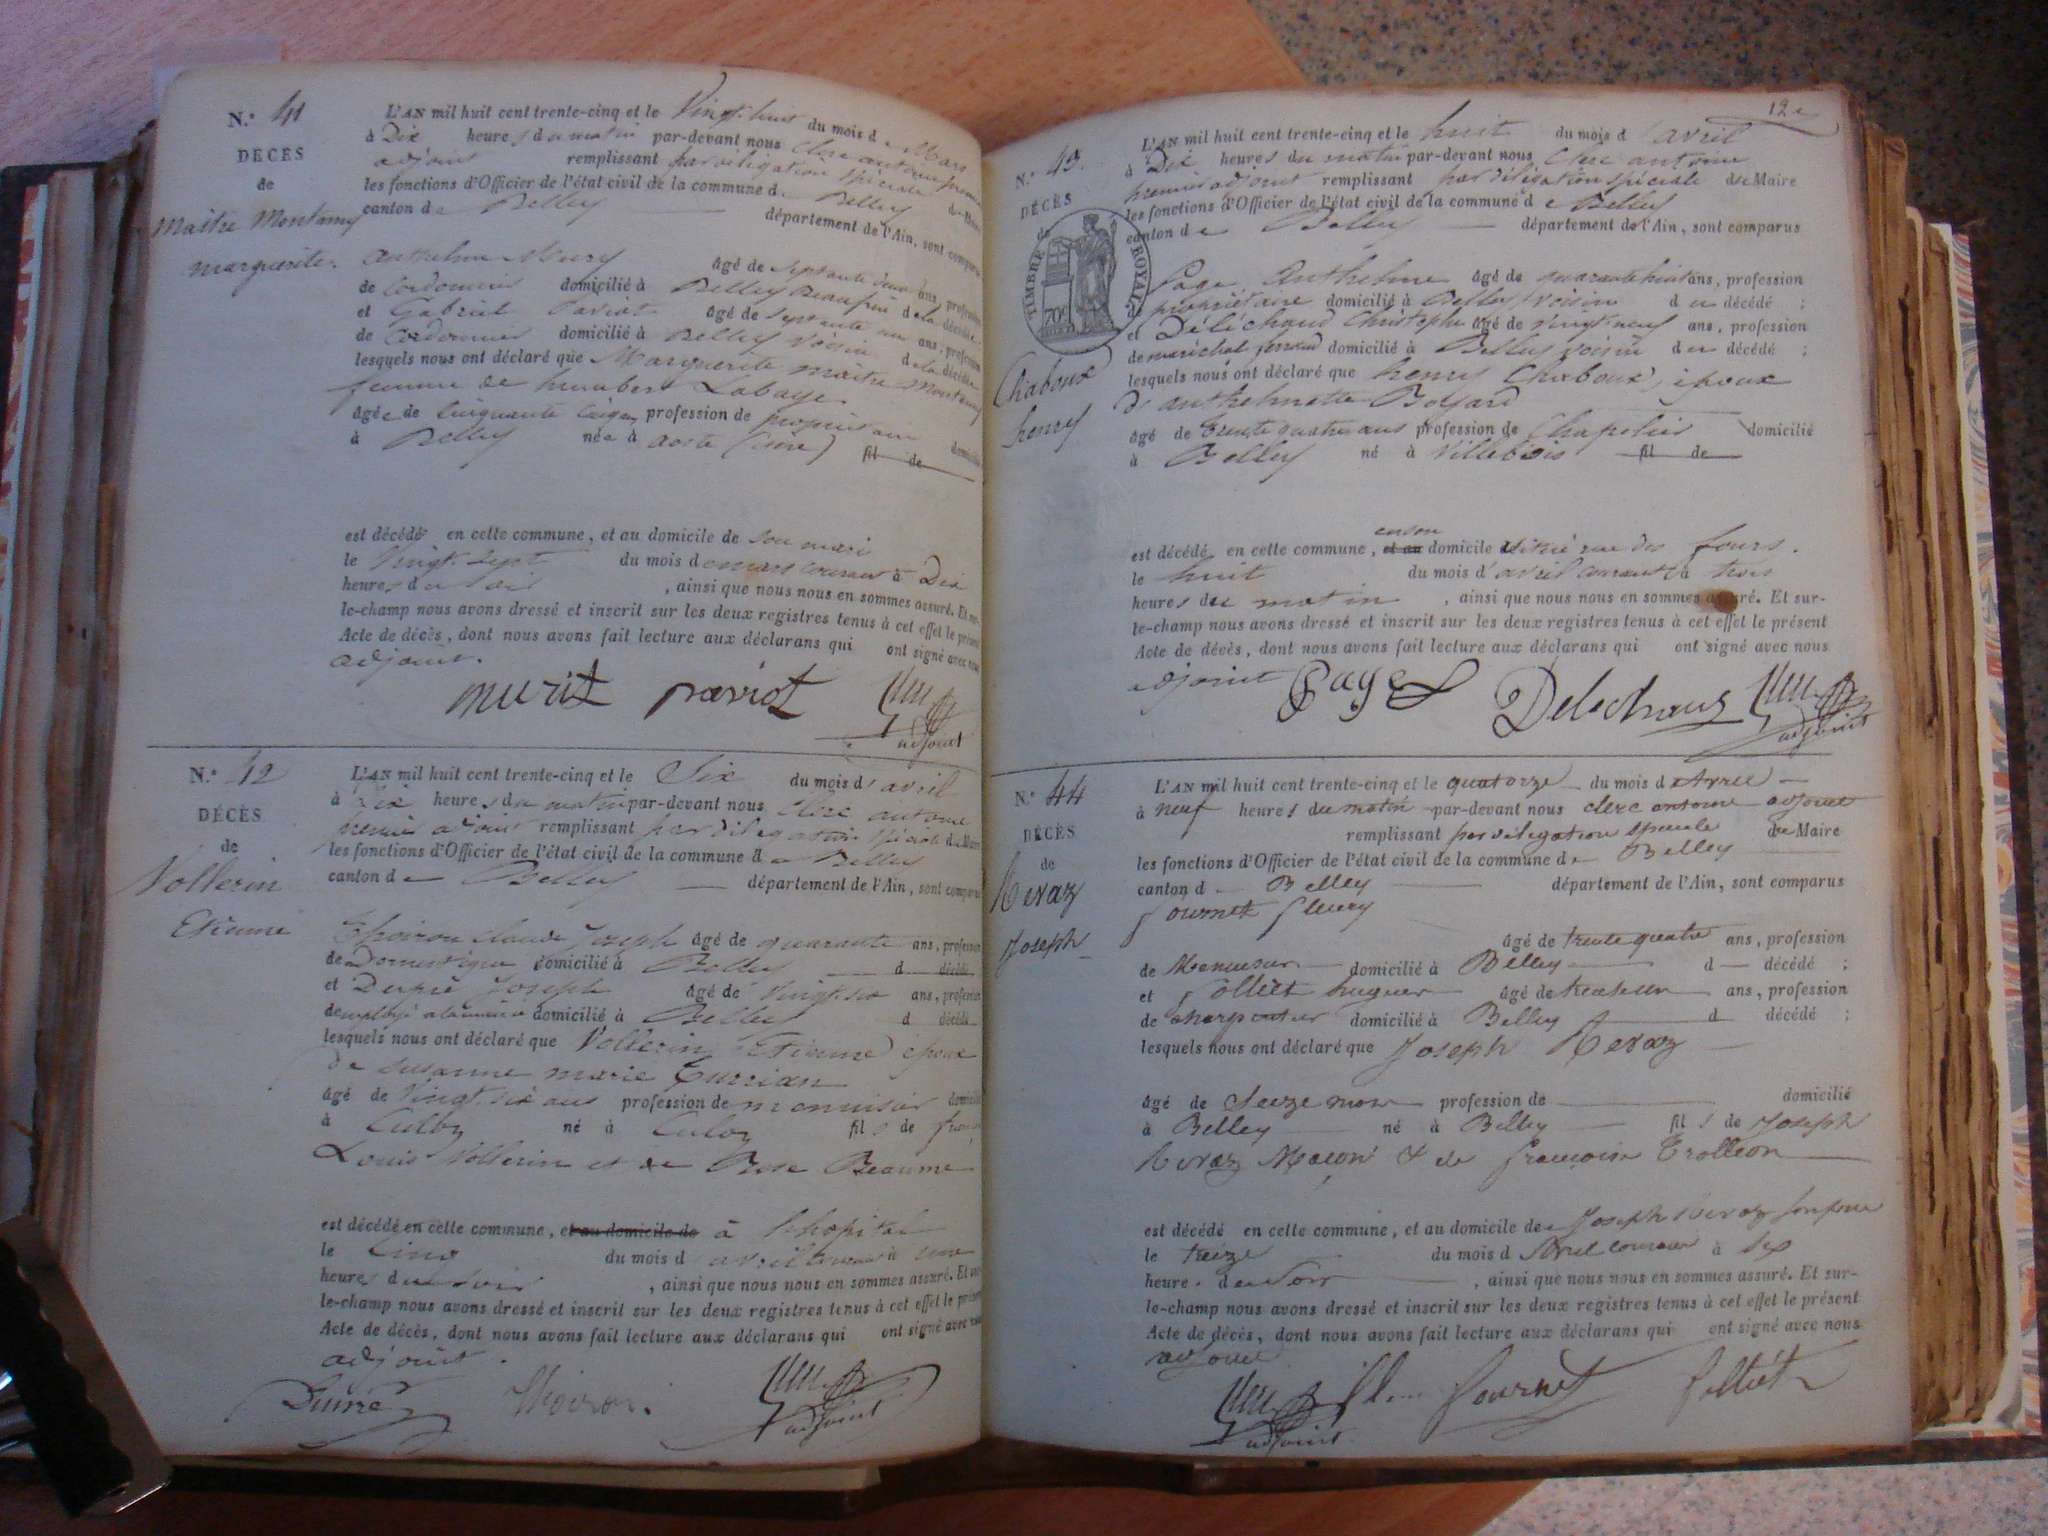 N.° 41
DÉCÈS
de
Maitre Montamy
marguerite.
L'AN mil huit cent trente-cinq et le Vingt-huit du mois de Mars
à Dix heures du matin par-devant nous Clerc antoine premier
adjoint remplissant par déligation spéciale de Maire
les fonctions d'Officier de l'état civil de la commune de Belley
canton de Belley département de l'Ain, sont comparus
anthelme âgé de septante deux ans, profession
de Cordonnier domicilié à Belley de la décédée
et Gabriel Paviot âgé de septante un ans, profession
de Cordonnier domicilié à Belley voisin de la décédée
lesquels nous ont déclaré que Marguerite maitre Montamy
femme de humbert Labaye
âgée de Cinquante profession de propriétaire domicilié
à Belley née à aoste (isère) fil de
est décédé en cette commune, et au domicile de son mari
le Vingt-sept du mois de mars courant à Dix
heures du soir, ainsi que nous nous en sommes assuré. Et sur-
le-champ nous avons dressé et inscrit sur les deux registres tenus à cet effet le présent
Acte de décès, dont nous avons fait lecture aux déclarans qui ont signé avec nous
adjoint.
murit paviot
adjoint
N.° 42
DÉCÈS
de
Vollerin
Etienne
L'AN mil huit cent trente-cinq et le Six du mois d'avril
à Dix heures du matin par-devant nous Clerc antoine
premier adjoint remplissant par déligation spéciale de Maire
les fonctions d'Officier de l'état civil de la commune de Belley
canton de Belley département de l'Ain, sont comparus
Thoiron Claude Joseph âgé de quarante ans, profession
de Domestique domicilié à Belley d décédé
et Joseph âgé de Vingt-six ans, profession
de employé domicilié à Belley d décédé
lesquels nous ont déclaré que Vollerin Etienne époux
de susanne marie Currian
âgé de Vingt six ans profession de menuisier domicilié
à Culoz né à Culoz fils de
Louis Vollerin et de Rose Beaume
est décédé en cette commune, et au domicile de à l'hopital
le Cinq du mois d avril courant à une
heures du soir, ainsi que nous nous en sommes assuré. Et sur-
le-champ nous avons dressé et inscrit sur les deux registres tenus à cet effet le présent
Acte de décès, dont nous avons fait lecture aux déclarans qui ont signé avec nous
adjoint.
Thoiron.
adjoint
12e
N.° 43.
DÉCÈS
de
TIMBRE ROYAL
70c
Chaboux
henry
L'AN mil huit cent trente-cinq et le huit du mois d avril
à Dix heures du matin par-devant nous Clerc antoine
premier adjoint remplissant par déligation spéciale de Maire
les fonctions d'Officier de l'état civil de la commune de Belley
canton de Belley département de l'Ain, sont comparus
Page Anthelme âgé de quarante huit ans, profession
de propriétaire domicilié à Belley voisin du décédé ;
et Déléchaud Christophe âgé de vingt-neuf ans, profession
de maréchal ferrand domicilié à Belley voisin du décédé ;
lesquels nous ont déclaré que henry Chaboux, époux
d'anthelmette Boyard
âgé de trente quatre ans profession de Chapelier domicilié
à Belley né à Villebois fil de
en son
est décédé en cette commune, et au domicile situé rue des fours.
le huit du mois d'avril courant à trois
heures du matin, ainsi que nous nous en sommes assuré. Et sur-
le-champ nous avons dressé et inscrit sur les deux registres tenus à cet effet le présent
Acte de décès, dont nous avons fait lecture aux déclarans qui ont signé avec nous
adjoint Page Delechaux
adjoint
N.° 44
DÉCÈS
de
Revaz
Joseph
L'AN mil huit cent trente-cinq et le quatorze du mois d Avril
à neuf heures du matin par-devant nous clerc antoine adjoint
remplissant par deligation speciale de Maire
les fonctions d'Officier de l'état civil de la commune de Belley
canton d Belley département de l'Ain, sont comparus
fournet fleury
âgé de trente quatre ans, profession
de Menuisier domicilié à Belley d décédé ;
et âgé de ans, profession
de charpentier domicilié à Belley d décédé ;
lesquels nous ont déclaré que Joseph Revaz
âgé de Seize mois profession de domicilié
à Belley né à Belley fils de Joseph
Revaz Maçon & de françoise Trolleon
est décédé en cette commune, et au domicile de Joseph Revaz son père
le treize du mois d Avril courant à six
heure. du soir, ainsi que nous nous en sommes assuré. Et sur-
le-champ nous avons dressé et inscrit sur les deux registres tenus à cet effet le présent
Acte de décès, dont nous avons fait lecture aux déclarans qui ont signé avec nous
adjoint
fournet
adjoint